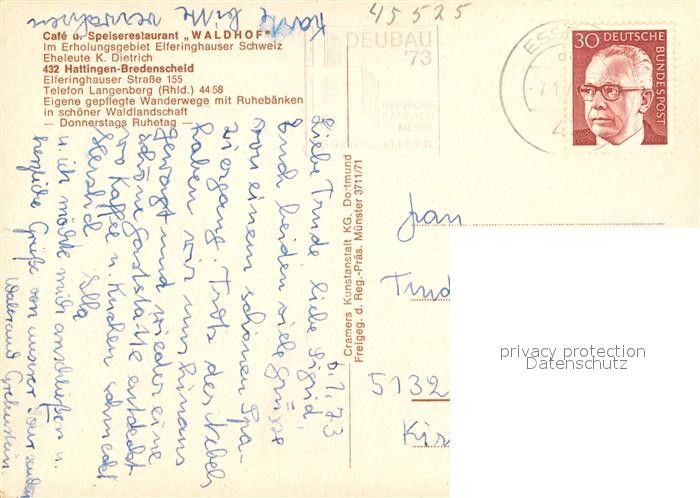 Karte bitte verwahren
45 525
Café u. Speiserestaurant „WALDHOF"
Im Erholungsgebiet Elferinghauser Schweiz
Eheleute K. Dietrich
432 Hattingen-Bredenscheid
Elferinghauser Straße 155
Telefon Langenberg (Rhld.) 44 58
Eigene gepflegte Wanderwege mit Ruhebänken
in schöner Waldlandschaft
— Donnerstags Ruhetag —
DEUBAU
'73
DEUTSCHE
MESSE
ESSEN
30 DEUTSCHE
BUNDESPOST
7.1.73
Liebe Trude, liebe Sigrid,
Euch beiden viele Grüsse
von einem schönen Spa-
ziergang. Trotz des Nebels
haben wir uns hinaus
gewagt und wieder eine
schöne Gaststätte entdeckt
wo Kaffee u. Kuchen schmeckt
Herzlich Ella
u. ich möchte mich anschließen u.
herzliche Grüße von unserer Tour senden
Waltraud
Cramers Kunstanstalt KG, Dortmund
Freigeg. d. Reg.-Präs. Münster 3711/71
Frau
Trud
5132
Kir
privacy protection
Datenschutz